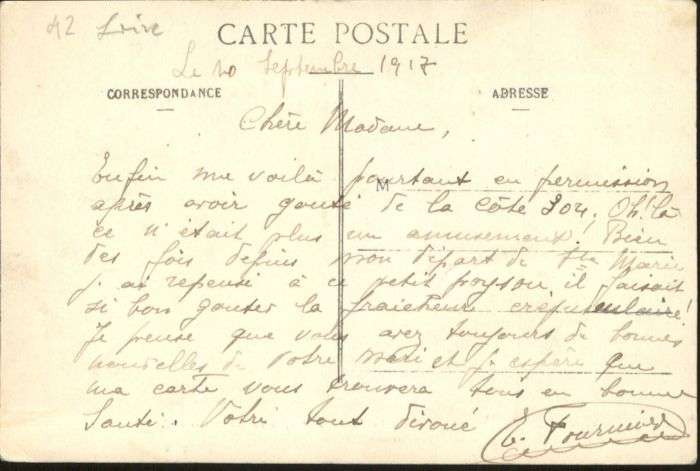 42 Loire
CARTE POSTALE
Le 20 Septembre 1917
CORRESPONDANCE
ADRESSE
Chère Madame,
M
Enfin me voilà pourtant en permission
après avoir gouté de la côte 304. Oh! là
ce n'était plus un amusement! Bien
des fois depuis mon départ de Ste Marie
j'ai repensé à ce petit il faisait
si bon gouter la fraicheur crépusculaire!
Je pense que vous avez toujours de bonnes
nouvelles de votre mari et j'espère que
ma carte vous trouvera tous en bonne
Santé. Votre tout dévoué
Fournier